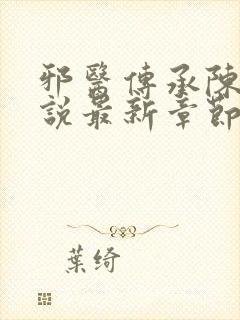 邪醫傳承陳
說最新章節
葉綺